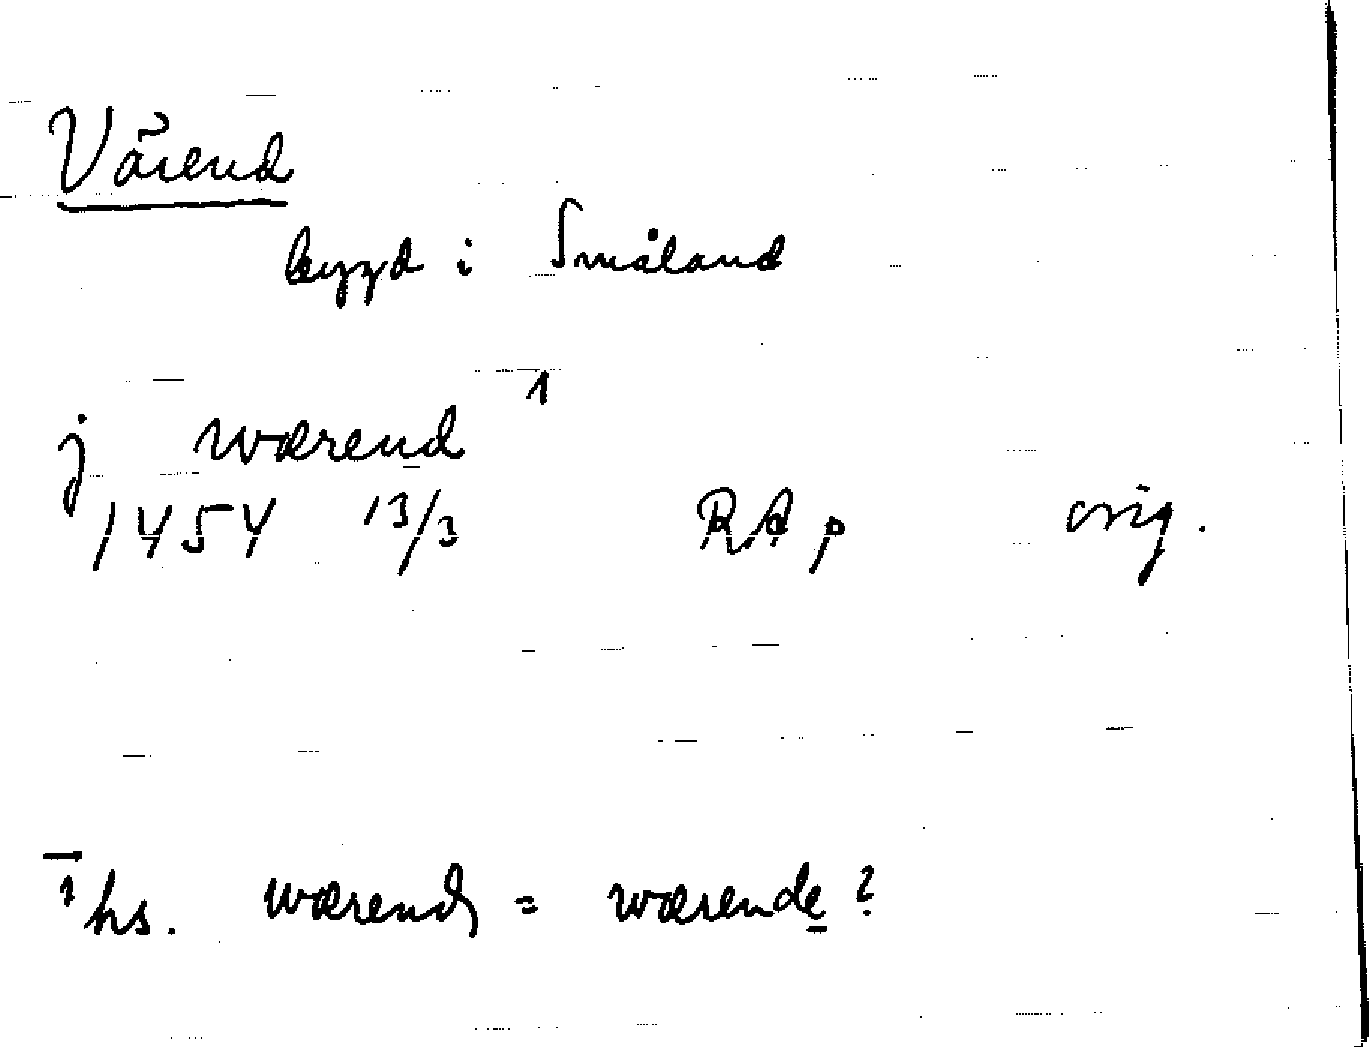 Värend
bygd i Småland
j wærend ¹
1454 13/3 RAp orig.
¹ hs. wærend = wærende ?